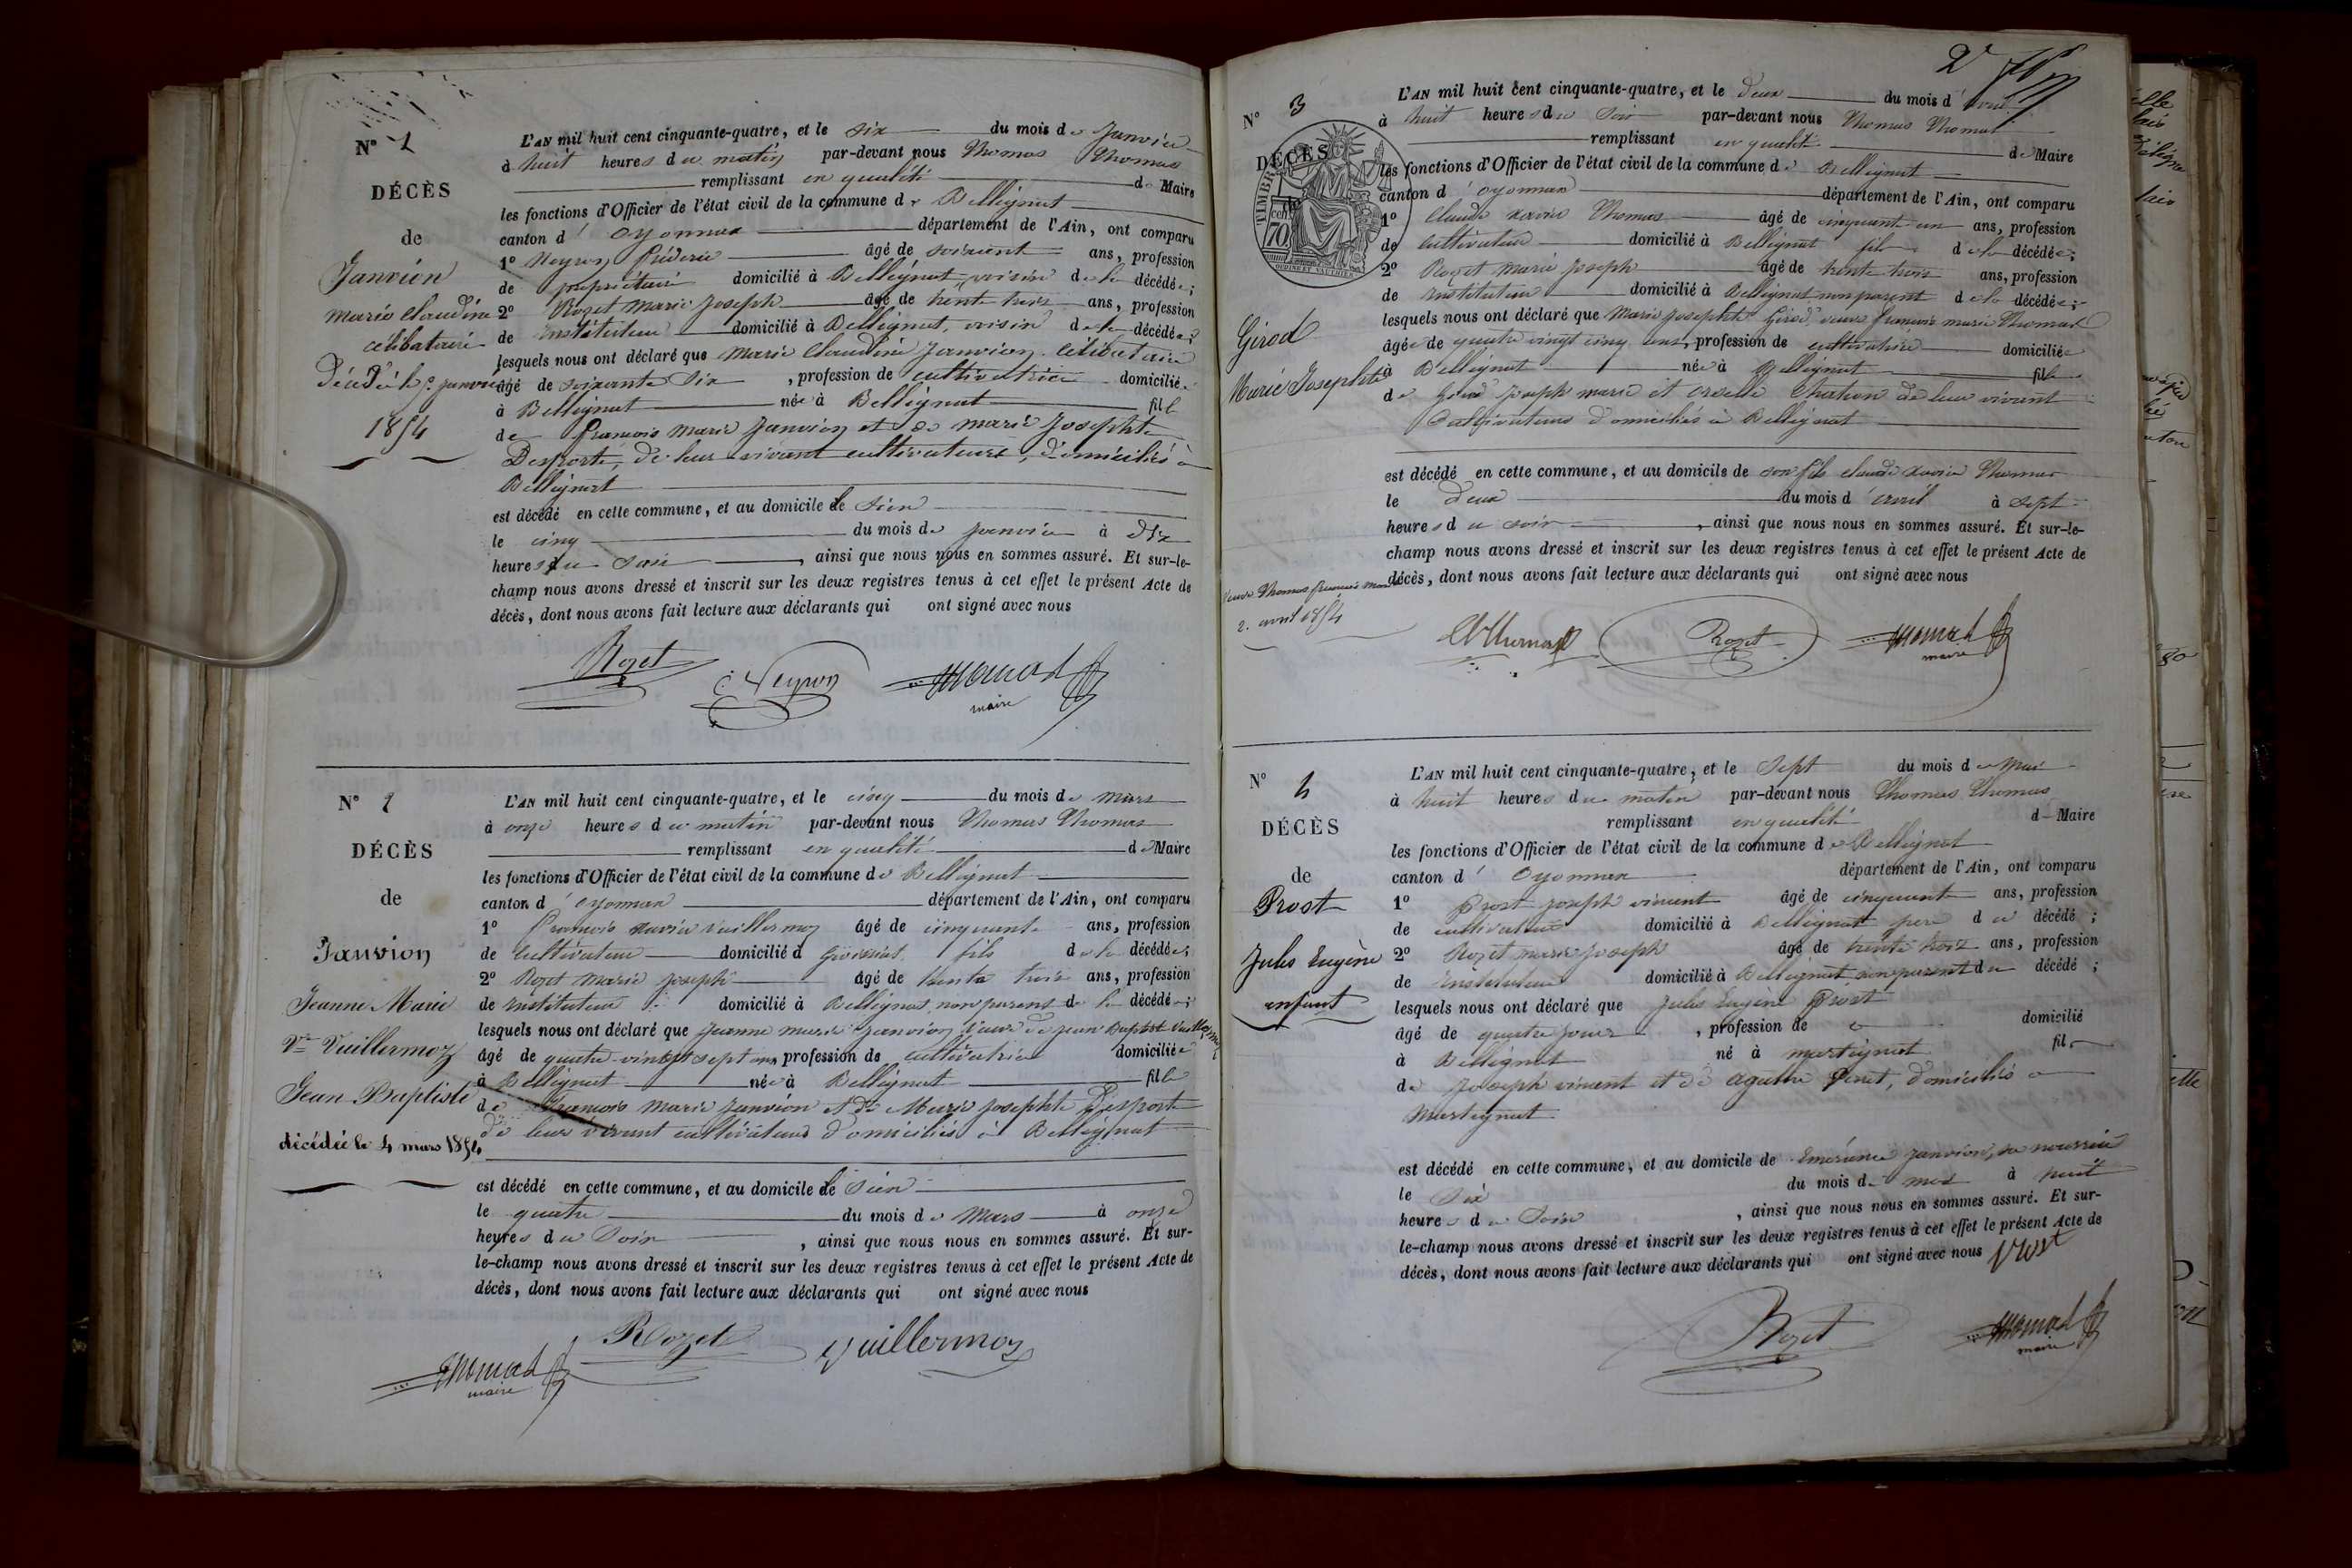 N° 1
DÉCÈS
de
Janvion
marie claudine
célibataire
Décédé le 5 janvier
1854
L'AN mil huit cent cinquante-quatre, et le six du mois de Janvier
à huit heures du matin par-devant nous Thomas Thomas
remplissant en qualité de Maire
les fonctions d'Officier de l'état civil de la commune de Bellignat
canton d'oyonnax département de l'Ain, ont comparu
1° Neyron Fréderic âgé de soixante ans, profession
de propriétaire domicilié à Bellignat, voisin de la décédée;
2° Rozet Marie Joseph âgé de trente trois ans, profession
de Instituteur domicilié à Bellignat, voisin de la décédée;
lesquels nous ont déclaré que Marie Claudine Janvion célibataire
âgé de soixante six, profession de cultivatrice domiciliée
à Bellignat née à Bellignat fille
de françois marie Janvion et de marie Josephte
Desporte, de leur vivant cultivateurs, domiciliés à
Bellignat
est décédé en cette commune, et au domicile le sien
le cinq du mois de janvier à dix
heures du soir, ainsi que nous nous en sommes assuré. Et sur-le-
champ nous avons dressé et inscrit sur les deux registres tenus à cet effet le présent Acte de
décès, dont nous avons fait lecture aux déclarants qui ont signé avec nous
Rozet Neyron Thomas
maire
N° 2
DÉCÈS
de
Janvion
Jeanne Marie
Ve Vuillermoz
Jean-Baptiste
décédée le 4 mars 1854
L'AN mil huit cent cinquante-quatre, et le cinq du mois de mars
à onze heures du matin par-devant nous Thomas Thomas
remplissant en qualité de Maire
les fonctions d'Officier de l'état civil de la commune de Bellignat
canton d'oyonnax département de l'Ain, ont comparu
1° François xavier vuillermoz âgé de cinquante ans, profession
de cultivateur domicilié à Groissiat, fils de la décédée;
2° Rozet Marie Joseph âgé de trente trois ans, profession
de Instituteur domicilié à Bellignat non parent de la décédée;
lesquels nous ont déclaré que Jeanne marie Janvion veuve de jean Baptiste Vuillermoz
âgé de quatre-vingt sept ans, profession de cultivatrice domiciliée
à Bellignat née à Bellignat fille
de François Marie Janvion et de Marie Josephte Desporte
de leur vivant cultivateurs domiciliés à Bellignat
est décédé en cette commune, et au domicile le sien
le quatre du mois de Mars à onze
heures du soir, ainsi que nous nous en sommes assuré. Et sur-
le-champ nous avons dressé et inscrit sur les deux registres tenus à cet effet le présent Acte de
décès, dont nous avons fait lecture aux déclarants qui ont signé avec nous
Thomas Rozet vuillermoz
maire
2
N° 3
DÉCÈS
de
TIMBRE
cen. 70
Girod
Marie Josephte
veuve Thomas françois marie
2. avril 1854
L'AN mil huit cent cinquante-quatre, et le deux du mois d'avril
à huit heures du soir par-devant nous Thomas Thomas
remplissant en qualité de Maire
les fonctions d'Officier de l'état civil de la commune de Bellignat
canton d'oyonnax département de l'Ain, ont comparu
1° Claude xavier Thomas âgé de cinquante un ans, profession
de cultivateur domicilié à Bellignat fils de la décédée;
2° Rozet marie Joseph âgé de trente trois ans, profession
de Instituteur domicilié à Bellignat non parent de la décédée;
lesquels nous ont déclaré que Marie Josephte Girod veuve françois marie Thomas
âgée de quatre vingt cinq ans, profession de cultivatrice domiciliée
à Bellignat née à Bellignat fille
de Girod joseph marie et de leur vivant
Cultivateurs domiciliés à Bellignat
est décédé en cette commune, et au domicile de son fils claude xavier Thomas
le deux du mois d'avril à sept
heures du soir, ainsi que nous nous en sommes assuré. Et sur-le-
champ nous avons dressé et inscrit sur les deux registres tenus à cet effet le présent Acte de
décès, dont nous avons fait lecture aux déclarants qui ont signé avec nous
Thomas Rozet Thomas
maire
N° 4
DÉCÈS
de
Prost
Jules Eugène
enfant
L'AN mil huit cent cinquante-quatre, et le sept du mois de Mai
à huit heures du matin par-devant nous Thomas Thomas
remplissant en qualité de Maire
les fonctions d'Officier de l'état civil de la commune de Bellignat
canton d'Oyonnax département de l'Ain, ont comparu
1° Prost joseph vincent âgé de cinquante ans, profession
de cultivateur domicilié à Bellignat père du décédé;
2° Rozet marie Joseph âgé de trente trois ans, profession
de Instituteur domicilié à Bellignat non parent du décédé;
lesquels nous ont déclaré que Jules Eugène Prost
âgé de quatre jours, profession de domicilié
à Bellignat né à martignat fils
de Joseph vincent et de agathe Perret, domiciliés à
Martignat
est décédé en cette commune, et au domicile de Janvion, sa nourrice
le six du mois de mai à huit
heures du Soir, ainsi que nous nous en sommes assuré. Et sur-
le-champ nous avons dressé et inscrit sur les deux registres tenus à cet effet le présent Acte de
décès, dont nous avons fait lecture aux déclarants qui ont signé avec nous Prost
Rozet Thomas
maire